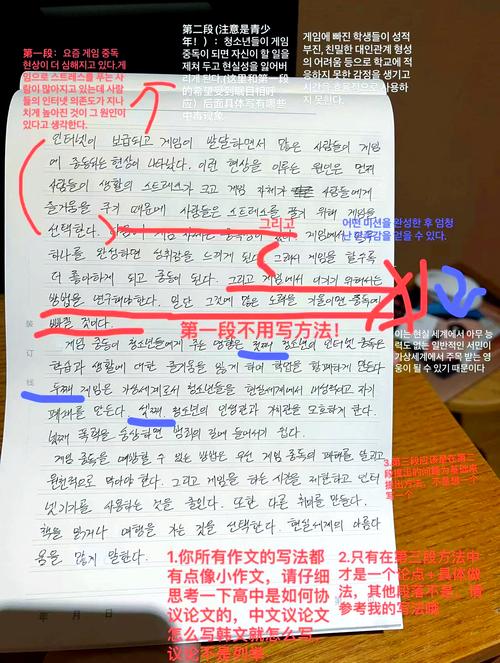 第一段：요즘 게임 중독
현상이 더 심해지고 있다.게
임으로 스트레스를 푸는 사
람이 많아지고 있는데 사람
들의 인터넷 의존도가 지나
치게 높아진 것이 그 원인이
있다고 생각한다.
第二段 (注意是青少
年！）：청소년들이 게임
중독이 되면 자신이 할 일을
제처 두고 현실성을 잃어버
리게 된다.(这里和第一段的
的希望受到瞩目相呼
应）后面具体写有哪些
中毒现象
게임에 빠진 학생들이 성적
부진, 친밀한 대인관계 형성
의 어려움 등으로 학교에 적
응하지 못한 감정을 생기고
시간을 효율적으로 사용하
지 못한다.
인터넷이 보급되고 게임이 발달하면서 많은 사람들이 게임
에 중독되는 현상이 나타났다. 이런 현상을 이루는 원인은 먼저
사람들이 생활의 스트레스가 크고 게임 자체가 사람들에게
즐거움을 주기 때문에 사람들은 스트레스를 풀기 위해 게임을
선택한다. 게임에서 임무
그리고
어떤 미션을 완성한 후 엄청
난 만족감을 얻을 수 있다.
하나를 완성하면 성취감을 느끼게 된다. 그래서 게임을 할수록
더 좋아하게 되고 중독이 된다. 그리고 게임에서 이기기 위해서는
방법을 연구해야한다. 일단 그것에 많은 노력을 기울이면 중독에
빠질 것이다.
第一段不用写方法！
이는 현실 세계에서 아무 능
력도 없는 일반적인 서민이
가상세계에서 주목 받는 영
웅이 될 수 있기 때문이다
게임 중독이 청소년들에게 주는 영향은 첫째 청소년의 인터넷 중독은
학습과 생활에 대한 즐거움을 잃게 하며 학업을 황폐하게 만든다
둘째 게임은 가상세계로서 청소년들을 현실세계에서 내성적이고 자기
폐쇄를 만든다. 셋째 청소년의 인생관과 가치관을 모호하게 한다.
넷째 폭력을 숭상하면 범죄의 길에 들어서기 쉽다.
게임 중독을 예방할 수 있는 방법은 우선 게임 중독의 폐해를 알리고
원천적으로 막아야 한다. 그리고 게임을 하는 시간을 제한하고 인터
넷기기를 사용하는 것을 줄인다. 또한 다른 취미를 만든다.
책을 읽거나 여행을 가는 것을 선택한다. 현실세계의 아름다
움을 많이 말한다.
3.第三段应该是在第二
段提出的问题为基础来
提出方法，不是想一个
写一个
1.你所有作文的写法都
有点像小作文，请仔细
思考一下高中是如何协
议论文的，中文议论文
怎么写韩文就怎么写，
议论不是列举
2.只有在第三段方法中
才是一个论点+具体做
法，其他段落不是，请
参考我的写法哦
装
订
线
年 月 日